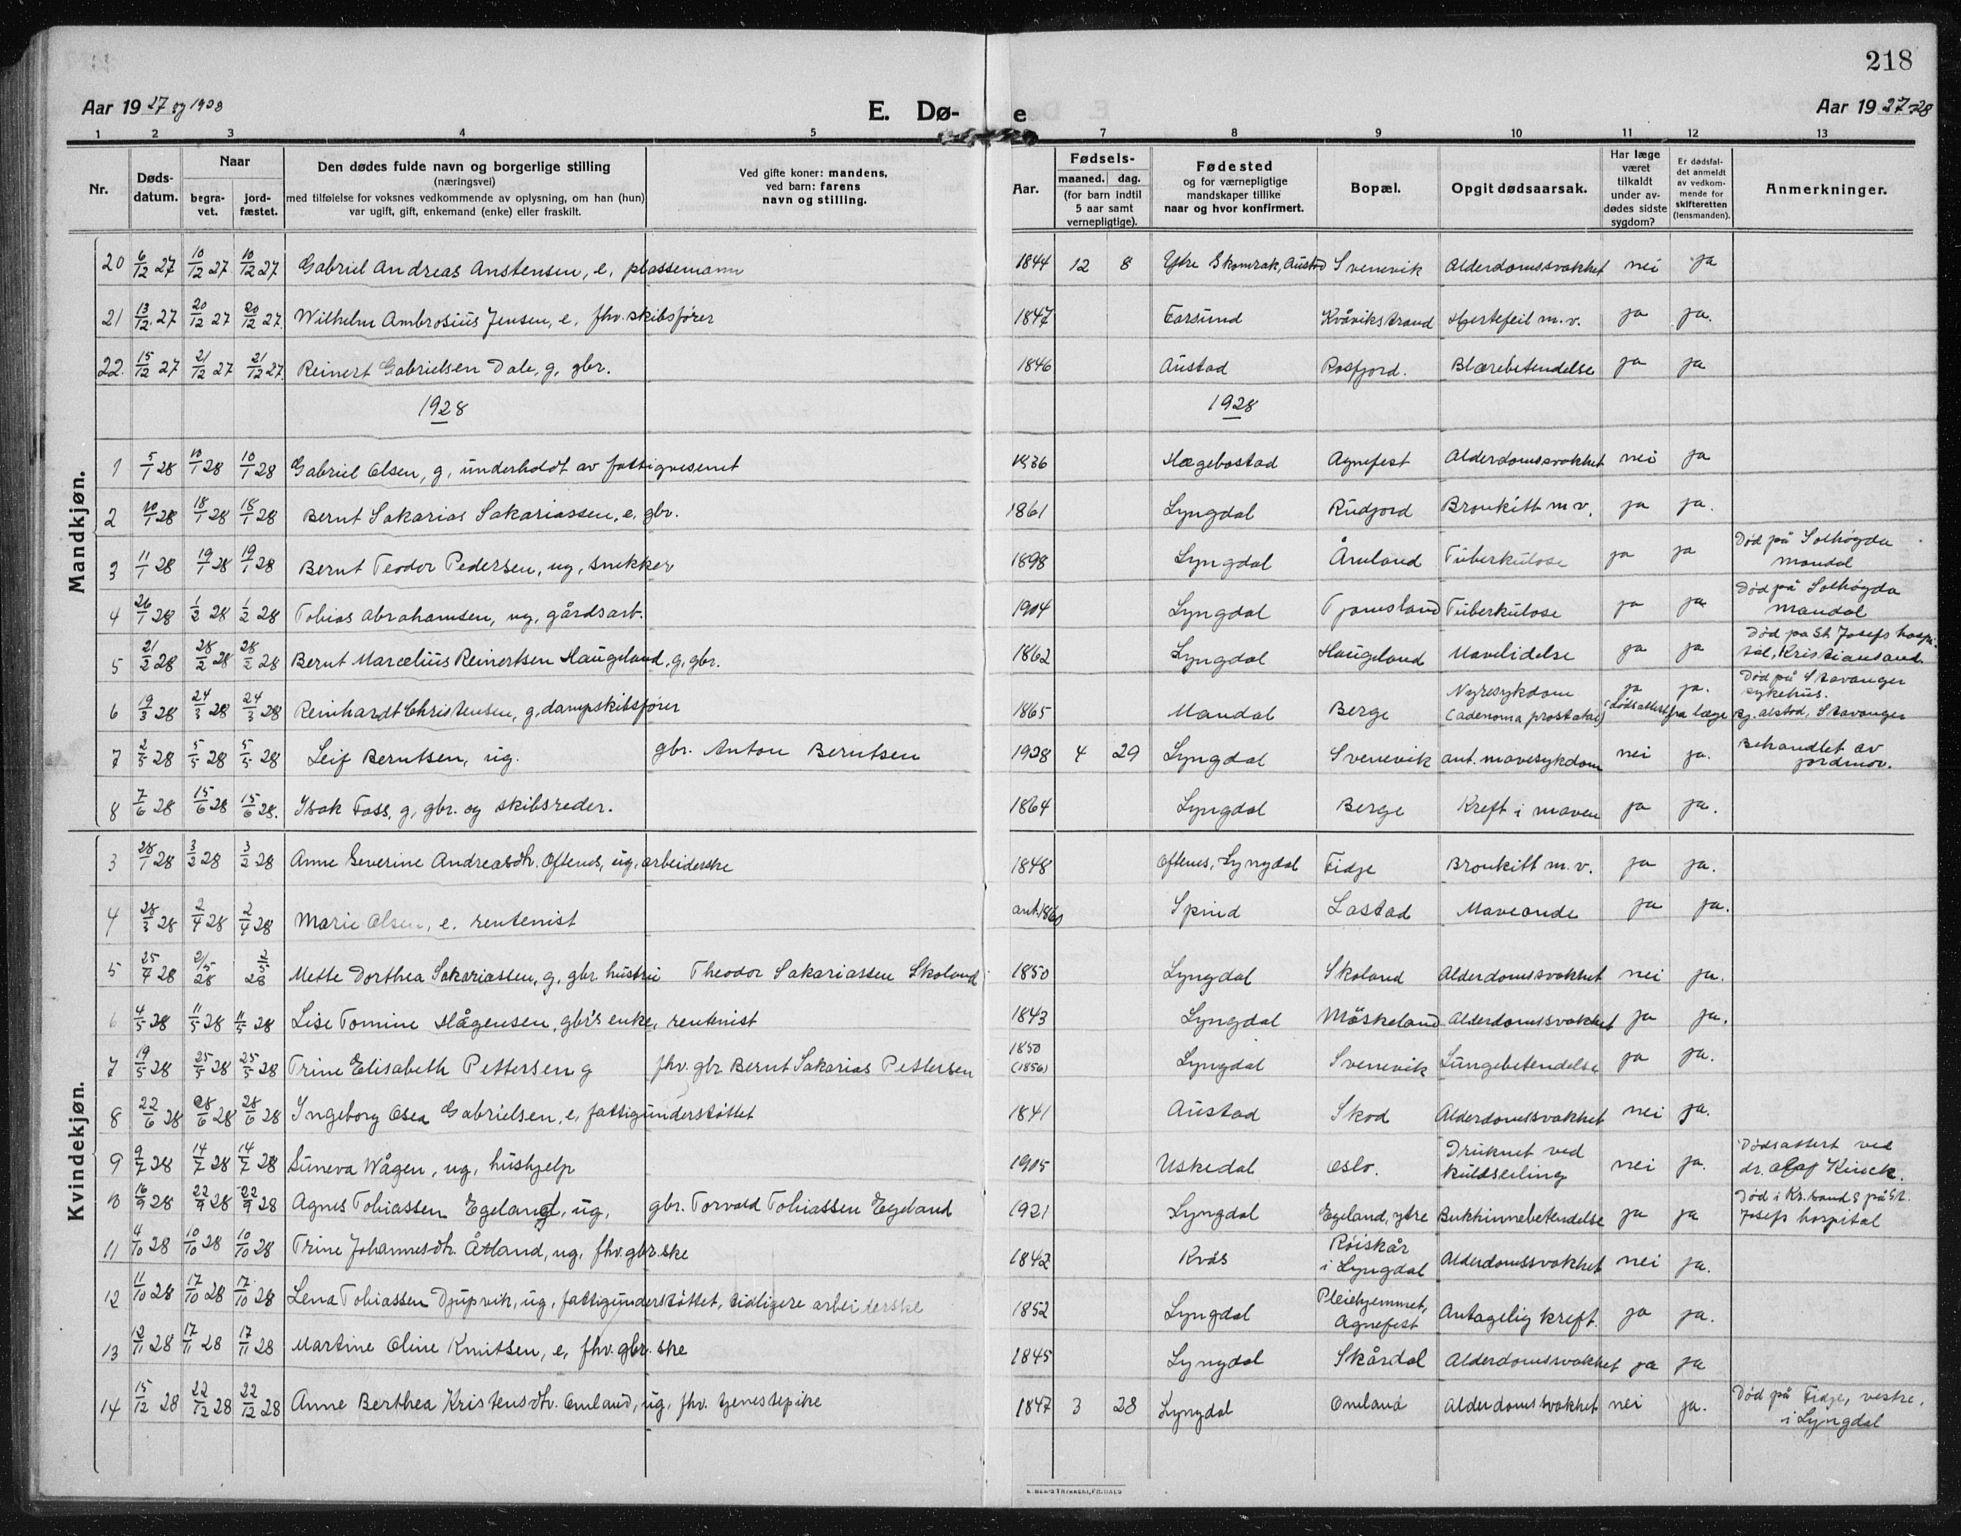 218
Aar 1927 og 1928 E. Dø- e Aar 1927-28
1 2 3 4 5 7 8 9 10 11 12 13
Nr. Døds-datum. Naar begra-vet. jord-fæstet. Den dødes fulde navn og borgerlige stilling (næringsvei) med tilføielse for voksnes vedkommende av oplysning, om han (hun) var ugift, gift, enkemand (enke) eller fraskilt. Ved gifte koner: mandens, ved barn: farens navn og stilling. Aar. Fødsels- maaned. dag. (for barn indtil 5 aar samt vernepligtige). Fødested og for værnepligtige mandskaper tillike naar og hvor konfirmert. Bopæl. Opgit dødsaarsak. Har læge været tilkaldt under av-dødes sidste sygdom? Er dødsfal-det anmeldt av vedkom-mende for skifteretten (lensmanden). Anmerkninger.
Mandkjøn.
20 6/12 27 10/12 27 10/12 27 Gabriel Andreas Anstensen, e, plassemann 1844 12 8 Ytre Skomrak, Austad Svenevik Alderdomssvakhet nei ja
21 13/12 27 20/12 27 20/12 27. Wilhelm Ambrosius Jensen, e, fhv. skibsfører 1847 Farsund Kvåvikstrand Hjertefeil m.v. ja ja.
22. 15/12 27 21/12 27 21/12 27. Reinert Gabrielsen Dale, g, gbr. 1846 Austad Rosfjord. Blærebetendelse ja ja
1928 1928
1 5/1 28 10/1 28 10/1 28 Gabriel Olsen, g, underholdt av fattigvesenet 1836 Hægebostad Agnefest Alderdomssvakhet nei ja
2 10/1 28 18/1 28 18/1 28 Bernt Sakarias Sakariassen, e, gbr. 1861 Lyngdal Rudjord Bronkitt m.v. ja ja.
3 11/1 28 19/1 28 19/1 28 Bernt Teodor Pedersen, ug, snekker 1898 Lyngdal Åmland Tuberkulose ja ja Død på Solhøgda Mandal
4 26/1 28 1/2 28 1/2 28 Tobias Abrahamsen, ug, gårdsarb. 1904 Lyngdal Tjomsland Tuberkulose ja ja Død på Solhøgda Mandal
5 21/2 28 28/2 28 28/2 28 Bernt Marcelius Reinertsen Haugeland, g, gbr. 1862 Lyngdal Haugeland Mavelidelse ja ja Død på St Josefs hospi-tal, Kristiansand.
6 19/3 28 24/3 28 24/3 28 Reinhardt Christensen, g, dampskibsfører 1865 Mandal Berge Nyresykdom (adenoma prostatae) ja (dødsattest ja. fra læge Død på Stavanger sykehus. Bj. alstad, Stavanger
7 2/5 28 5/5 28 5/5 28 Leif Berntsen, ug. gbr. Anton Berntsen 1928 4 29 Lyngdal Svenevik ant. mavesykdom nei ja. Behandlet av jordmor.
8 7/6 28 15/6 28 15/6 28. Isak Foss, g, gbr. og skibsreder. 1864 Lyngdal Berge Kreft i maven ja ja.
Kvindekjøn.
3 28/1 28 3/2 28 3/2 28 Anne Severine Andreasdtr. Oftenes, ug, arbeiderske 1848 Oftenes, Lyngdal Fidje Bronkitt m.v. ja ja.
4 28/3 28 2/4 28 2/4 28 Marie Olsen, e. rentenist ant. 1860 Spind Lastad Maveonde ja ja.
5 25/4 28 2/5 28 2/5 28 Mette Dorthea Sakariassen, g, gbr hustru Theodor Sakariassen Skoland 1850 Lyngdal Skoland Alderdomssvakhet nei ja.
6 4/5 28 11/5 28 11/5 28 Lise Tomine Hågensen, gbr's enke, rentenist 1843 Lyngdal Møskeland Alderdomssvakhet ja ja.
7 19/5 28 25/5 28 25/5 28 Trine Elisabeth Pettersen g fhv. gbr. Bernt Sakarias Pettersen 1850 (1856) Lyngdal Svenevik Lungebetendelse ja ja.
8 22/6 28 28/6 28 28/6 28 Ingeborg Osea Gabrielsen, e, fattigunderstøttet 1841 Austad Skod Alderdomssvakhet nei ja.
9 9/7 28 14/7 28 14/7 28 Suneva Wågen, ug, hushjelp 1905 Uskedal Oslo. Druknet ved kuldseiling nei ja. Dødsattest ved dr. Olaf
10 16/9 28 22/9 28 22/9 28 Agnes Tobiassen Egeland, ug, gbr. Torvald Tobiassen Egeland 1921 Lyngdal Egeland, ytre Bukhinnebetendelse ja ja Død i Kr.sand S på St. Josefs hospital
11 4/10 28 10/10 28 10/10 28 Trine Johannesdtr. Åtland, ug, fhv. gbr.ske 1842 Kvås Røiskår i Lyngdal Alderdomssvakhet nei ja.
12 11/10 28 17/10 28 17/10 28 Lena Tobiassen Djupvik, ug, fattigunderstøttet, tidligere arbeiderske 1852 Lyngdal Pleiehjemmet, Agnefest Antagelig kreft. ja ja.
13 12/11 28 17/11 28 17/11 28 Martine Oline Knutsen, e, fhv. gbr.ske 1845 Lyngdal Skårdal Alderdomssvakhet ja ja
14 15/12 28 22/12 28 22/12 28 Anne Berthea Kristensdtr. Omland, ug, fhv. tjenestepike 1847 3 28 Lyngdal Omland Alderdomssvakhet nei ja. Død på Fidje, vestre, i Lyngdal